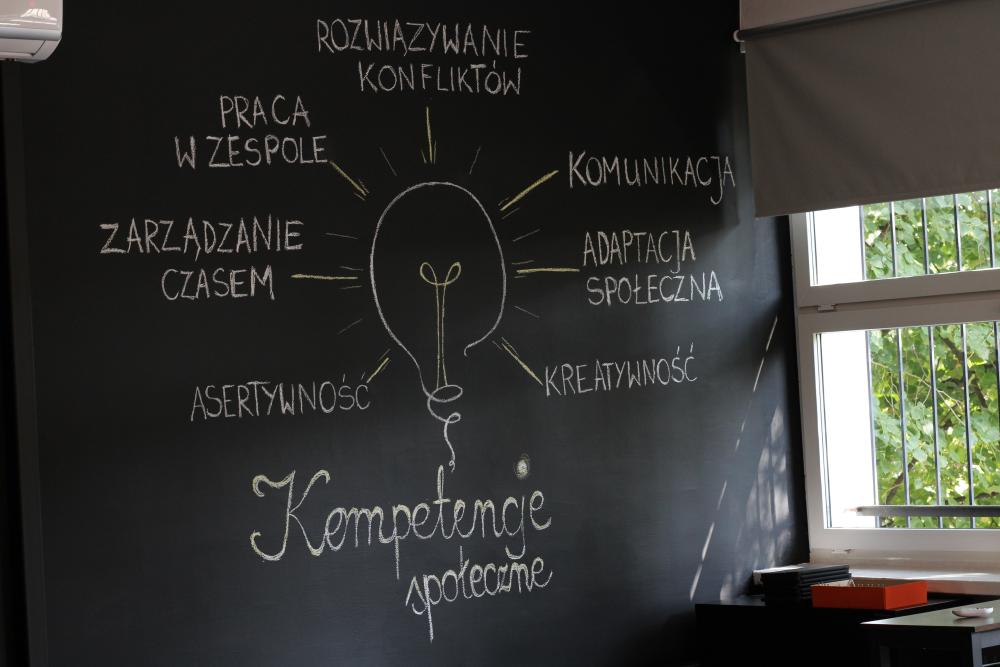 ROZWIĄZYWANIE
KONFLIKTÓW
PRACA
W ZESPOLE
KOMUNIKACJA
ZARZĄDZANIE
CZASEM
ADAPTACJA
SPOŁECZNA
ASERTYWNOŚĆ
KREATYWNOŚĆ
Kompetencje
społeczne